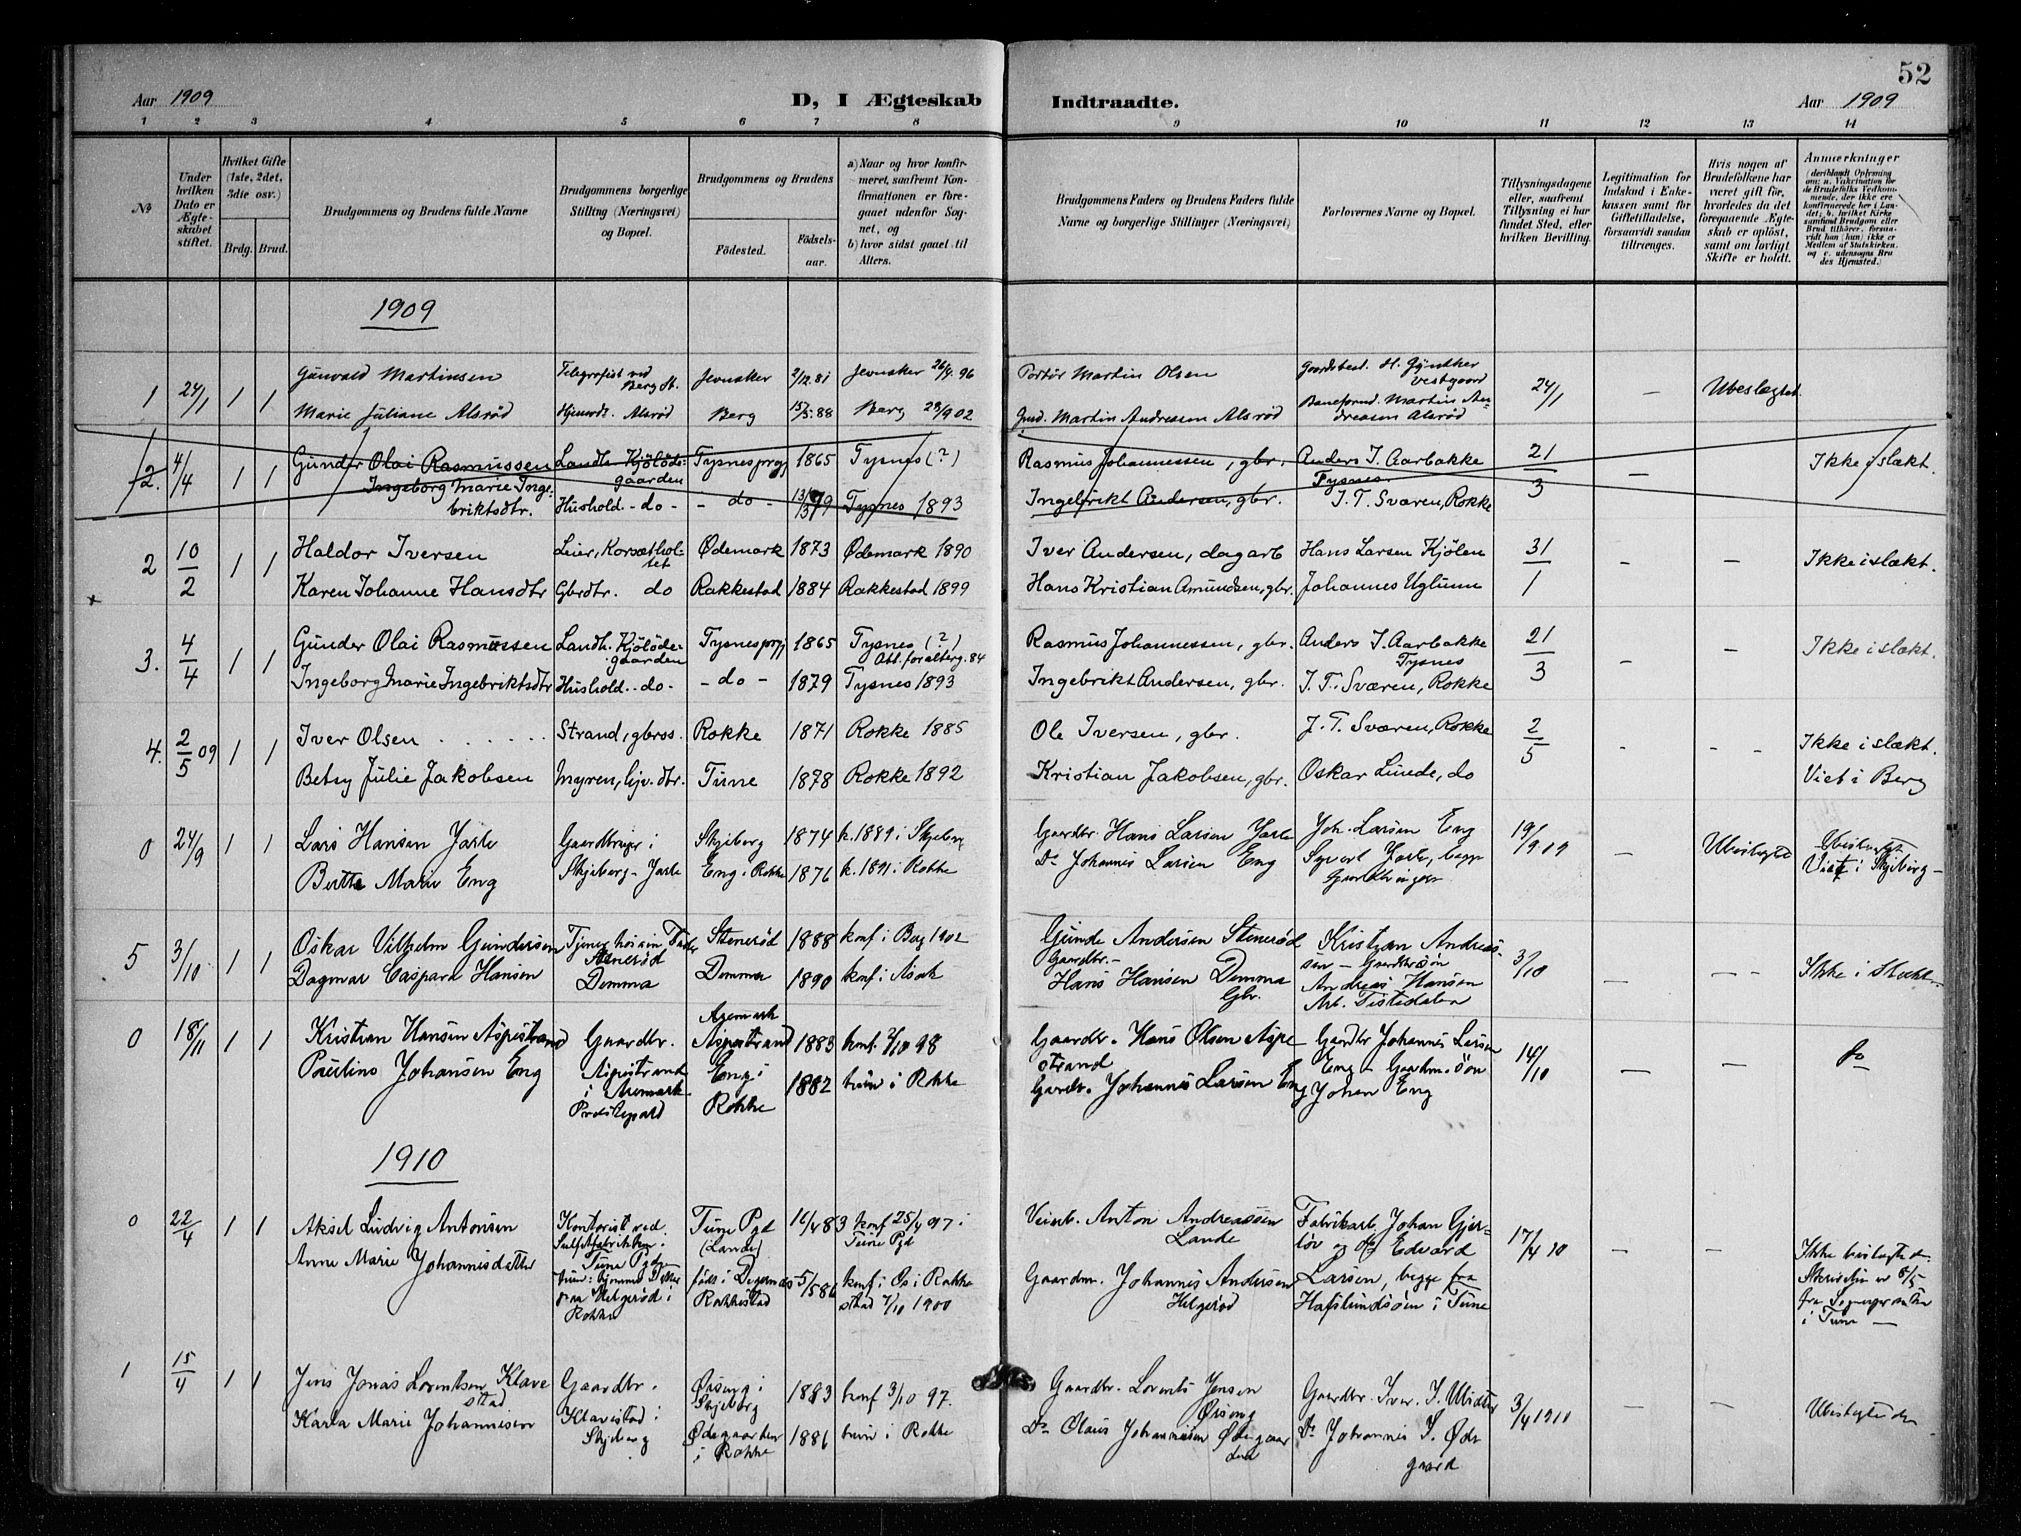 52
Aar 1909
D, I Ægteskab Indtraadte.
Aar 1909
1 2 3 4 5 6 7 8 9 10 11 12 13 14
No
Under hvilken Dato er Ægteskabet stiftet.
Hvilket Gifte (1ste, 2det, 3die osv.)
Brdg. Brud.
Brudgommens og Brudens fulde Navne
Brudgommens borgerlige Stilling (Næringsvei) og Bopæl.
Brudgommens og Brudens
Fødested. Fødsels-aar.
a) Naar og hvor konfirmeret, saafremt Konfirmationen er foregaaet udenfor Sognet, og
b) hvor sidst gaaet til Alters.
Brudgommens Faders og Brudens Faders fulde Navne og borgerlige Stillinger (Næringsvei)
Forlovernes Navne og Bopæl.
Tillysningsdagene eller, saafremt Tillysning ei har fundet Sted, efter hvilken Bevilling.
Legitimation for Indskud i Enkekassen samt for Giftetilladelse, forsaavidt saadan tiltrænges.
Hvis nogen af Brudefolkene har været gift før, hvorledes da det foregaaende Ægteskab er opløst, samt om lovligt Skifte er holdt.
Anmærkninger
(deriblandt Oplysning om: a. Vakcination for de Brudefolks Vedkommende, der ikke ere konfirmerede her i Landet; b. hvilket Kirkesamfund Brudgom eller Brud tilhører, forsaavidt han (hun) ikke er Medlem af Statskirken. og c. udensogns Brudes Hjemsted.)
1909
1 24/1 1 1 Gunvald Martinsen Telegrafist ved Berg st. Jevnaker 2/12.81 Jevnaker 26/4.96 Portør Martin Olsen Gaardsbest. H. Günther Vestgaard 24/1 — Ubeslægtet
Marie Juliane Alsrød Hjemdt. Alsrød Berg 15/5.88 Berg 28/9 02 Gmd. Martin Andreasen Alsrød Baneformd. Martin Andreasen Alsrød
2. 4/4 1 1 Gunder Olai Rasmussen Landh. Kjølødegaarden Tysnesprgj 1865 Tysnes (?) Rasmus Johannessen, gbr. Anders J. Aarbakke Tysnes. 21/3 — Ikke i slækt.
Ingeborg Marie Ingebriktsdtr. Hushold. - do - - do - 1879 Tysnes 1893 Ingebrikt Andersen, gbr. J. T. Sværen, Rokke
2 10/2 1 1 Haldor Iversen Leier, Korsætholtet Ødemark 1873 Ødemark 1890 Iver Andersen, dagarb Hans Larsen Kjølen 31/1 – – Ikke i slækt.
Karen Johanne Hansdtr Gbrdtr. do Rakkestad 1884 Rakkestad 1899 Hans Kristian Amundsen, gbr. Johannes Uglum
3. 4/4 1 1 Gunder Olai Rasmussen Landh. Kjølødegaarden Tysnesprgj 1865 Tysnes (?) Att. for alterg. 84 Rasmus Johannessen, gbr. Anders J. Aarbakke Tysnes 21/3 – – Ikke i slækt.
Ingeborg Marie Ingebriktsdtr Hushold. - do - - do - 1879 Tysnes 1893 Ingebrikt Andersen, gbr. J. T. Sværen, Rokke
4. 2/5 09 1 1 Iver Olsen Strand, gbros. Rokke 1871 Rokke 1885 Ole Iversen, gbr. J. T. Sværen, Rokke 2/5 - - - Ikke i slækt.
Betsy Julie Jakobsen Myren, lejv. dtr. Tune 1878 Rokke 1892 Kristian Jakobsen, gbr. Oskar Lunde, do Viet i Berg
0 24/9 1 1 Lars Hansen Jarle Gaardbruger i Skjeberg 1874 k. 1889 i Skjeberg Gaardbr. Hans Larsen Jarle Joh. Larsen Eng 19/9 09 – Ubeslægtede Ubeslægt
Berthe Marie Eng Skjeberg - Jarle Eng i Rokke 1876 k. 1891 i Rokke Do Johannes Larsen Eng Syvert Jarle, begge Gaardbruger Viet i Skjeberg –
5 3/10 1 1 Oskar Vilhelm Gundersen Tjener hos sin Fader Stenerød Stenerød 1888 konf i Berg 1902 Gunde Andersen Stenerød Gaardbr. – Kristian Andreassen – Gaardbrsøn 3/10 — – – Ikke i Slækt
Dagmar Caspara Hansen Demma Demma 1890 konf i Asak Hans Hansen Demma Gbr. Andreas Hansen Arb. Tistedalen
0 18/11 1 1 Kristian Hansen Aspestrand Gaardbr. Aremark Aspestrand 1883 konf 2/10 98 Gaardbr. Hans Olsen Aspestrand Gaardbr Johannes Larsen 14/10 — – do
Pauline Johansen Eng Aspestrand i Aremark Præstegjæld Eng i Rokke 1882 hun i Rokke Gaardbr. Johannes Larsen Eng Eng – Gaardm. søn Johan Eng
1910
0 22/4 1 1 Aksel Ludvig Antonsen Kontorist ved Sulfitfabrikken i Tune Pgd Tune Pgd (Lande) 12/4 83 konf 25/4 97 i Tune Pgd Veiarb. Anton Andreassen Lande Fabrikarb. Johan Gjerløv og Edvard 17/4 10 – – Ikke beslægtede
Anne Marie Johannesdatter hun: hjemme Datter paa Helgerød i Rokke født i Degernes Rakkestad 5/5 86 konf i Os i Rakkestad 7/10 1900 Gaardm. Johannes Andersen Helgerød Larsen, begge fra Hafslundsøen i Tune Skrivelse er 8/5 fra Sognepræsten i Tune —
1 15/4 1 1 Jens Jonas Lorentsen Klavestad Gaardbr. Ørseng i Skjeberg 1883 konf 3/10 97. Gaardbr. Lorents Jensen Ørseng Gaardbr. Iver J. 3/4 1910 – – Ubeslægtede
Karla Marie Johannesen Klavestad i Skjeberg Ødegaarden i Rokke 1886 hun i Rokke Do Olaus Johannesen Ødegaarden Do Johannes J. Ødegaard